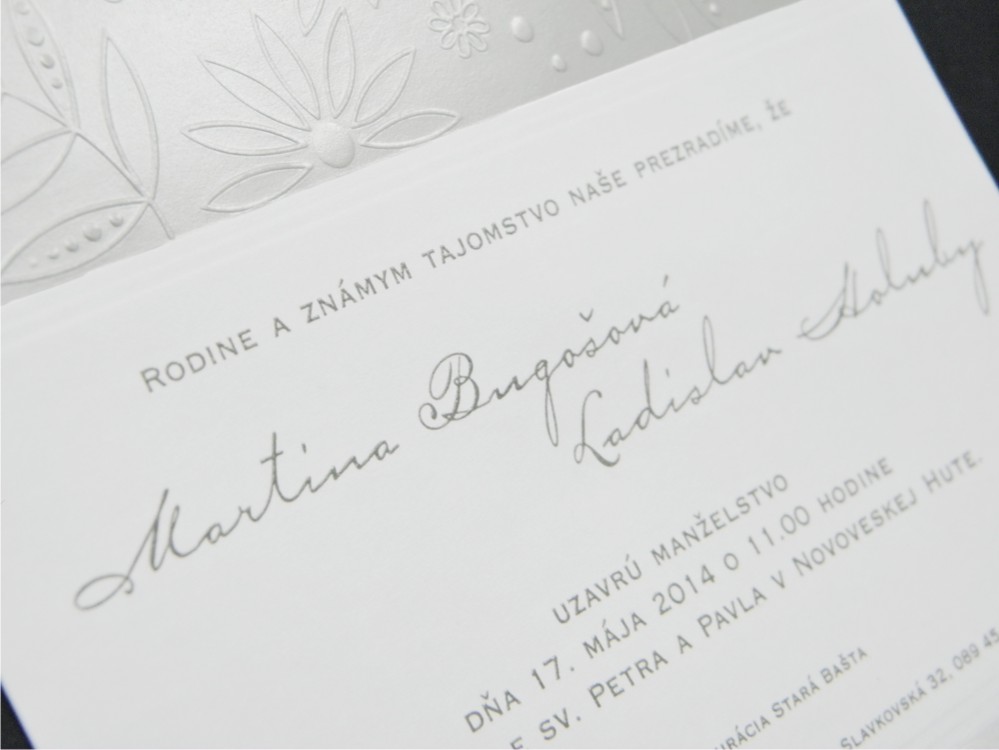 RODINE A ZNÁMYM TAJOMSTVO NAŠE PREZRADÍME, ŽE
Martina Bugošová
Ladislav Holuby
UZAVRÚ MANŽELSTVO
DŇA 17. MÁJA 2014 O 11.00 HODINE
E SV. PETRA A PAVLA V NOVOVESKEJ HUTE.
URÁCIA STARÁ BAŠTA
SLAVKOVSKÁ 32, 089 45